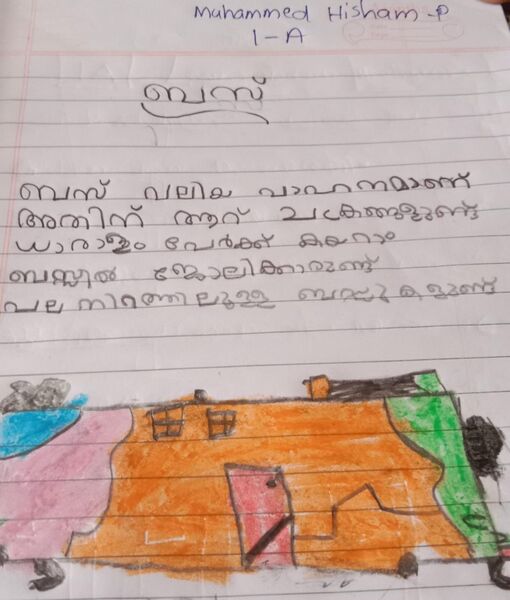 Muhammed Hisham -P
1-A
ബസ്
ബസ് വലിയ വാഹനമാണ്
അതിന് ആറ് ചക്രങ്ങളുണ്ട്
ധാരാളം പേർക്ക് കയറാം
ബസ്സിൽ ജോലിക്കാരുണ്ട്
പല നിറത്തിലുള്ള ബസ്സുകളുണ്ട്